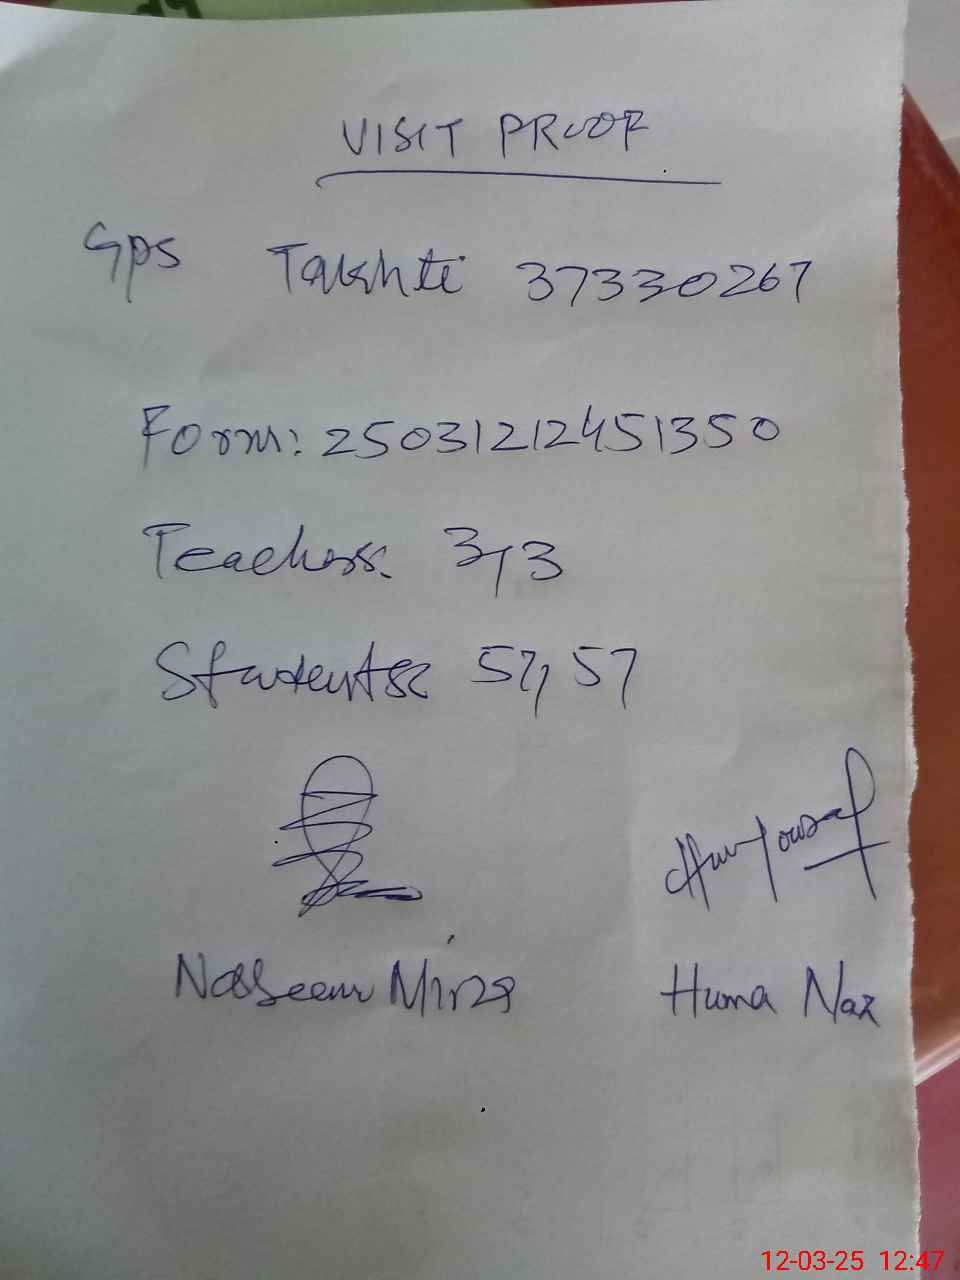 VISIT PROOF
Gps Takhti 37330267
Form: 25031212451350
Teachers: 3/3
Students: 57/57
Naseem Mirza Huma Naz
12-03-25 12:47